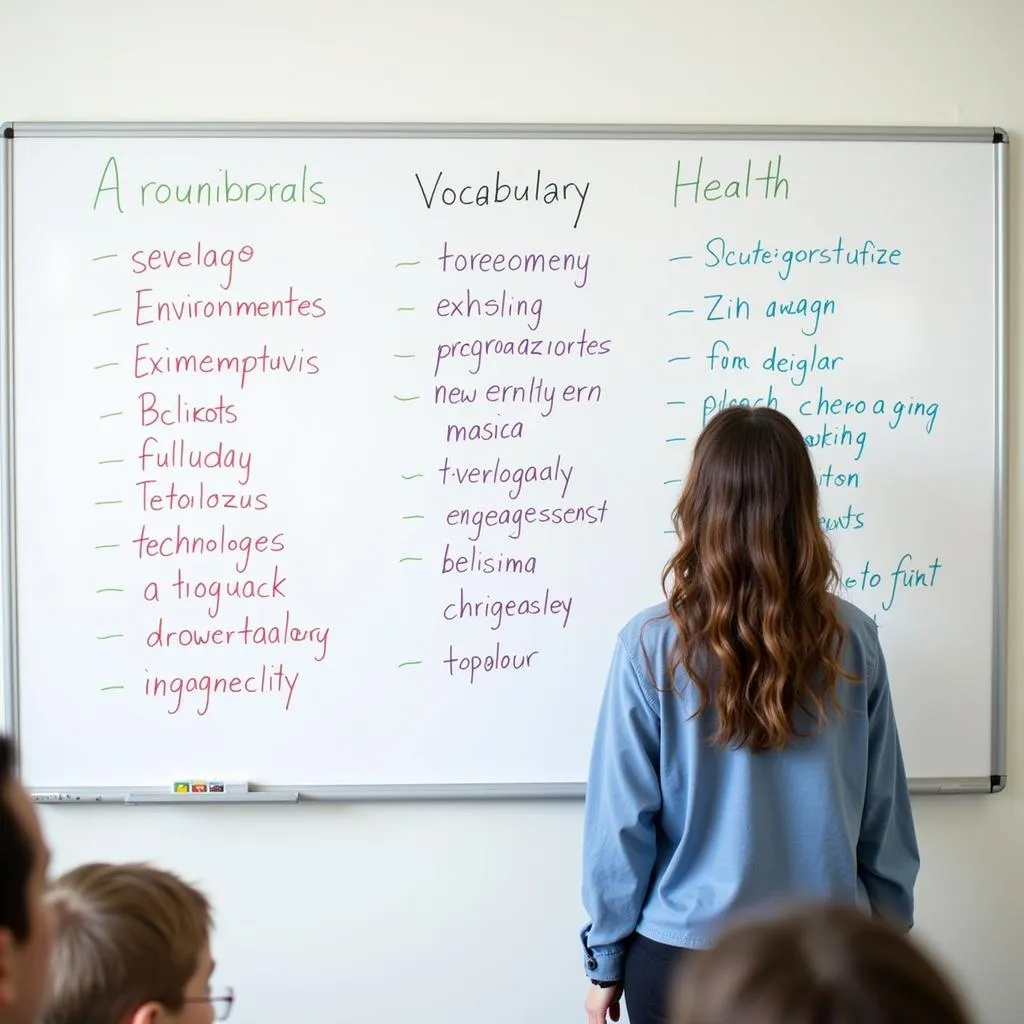 A rouniborals
— sevelage
— Environmentes
— Eximemptuvis
— Bclikots
— fulluday
— Tetoilozus
— technologes
— a tioguack
— drowertaalary
— ingagneclity
Vocabulary
— toreeomeny
— exhsling
— prcgroaaziortes
— new ernlty ern
masica
— t·verlogaaly
— engeagessenst
— belisima
chrigeasley
— topolour
Health
— Scute:gorstufize
— Zih awagn
— fom deiglar
— chero a ging
—
—
—
to fiint